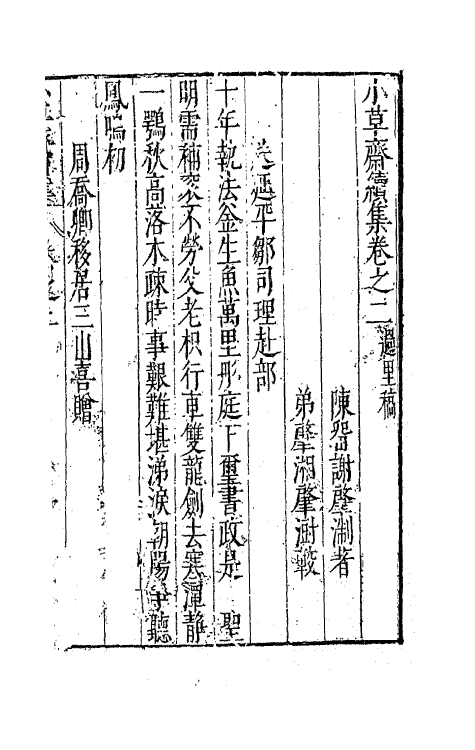 小草齋續集卷之二 還里稿
陳畱謝肇淛著
弟肇湘肇澍較
送延平鄒司理赴部
十年執法釡生魚萬里彤庭下璽書政是 聖
明需補衮不勞父老枳行車雙龍劍去寒潭靜
一鶚秋高落木疎時事艱難堪涕淚朝陽爭聽
鳳鳴初
周喬卿移居三山喜贈